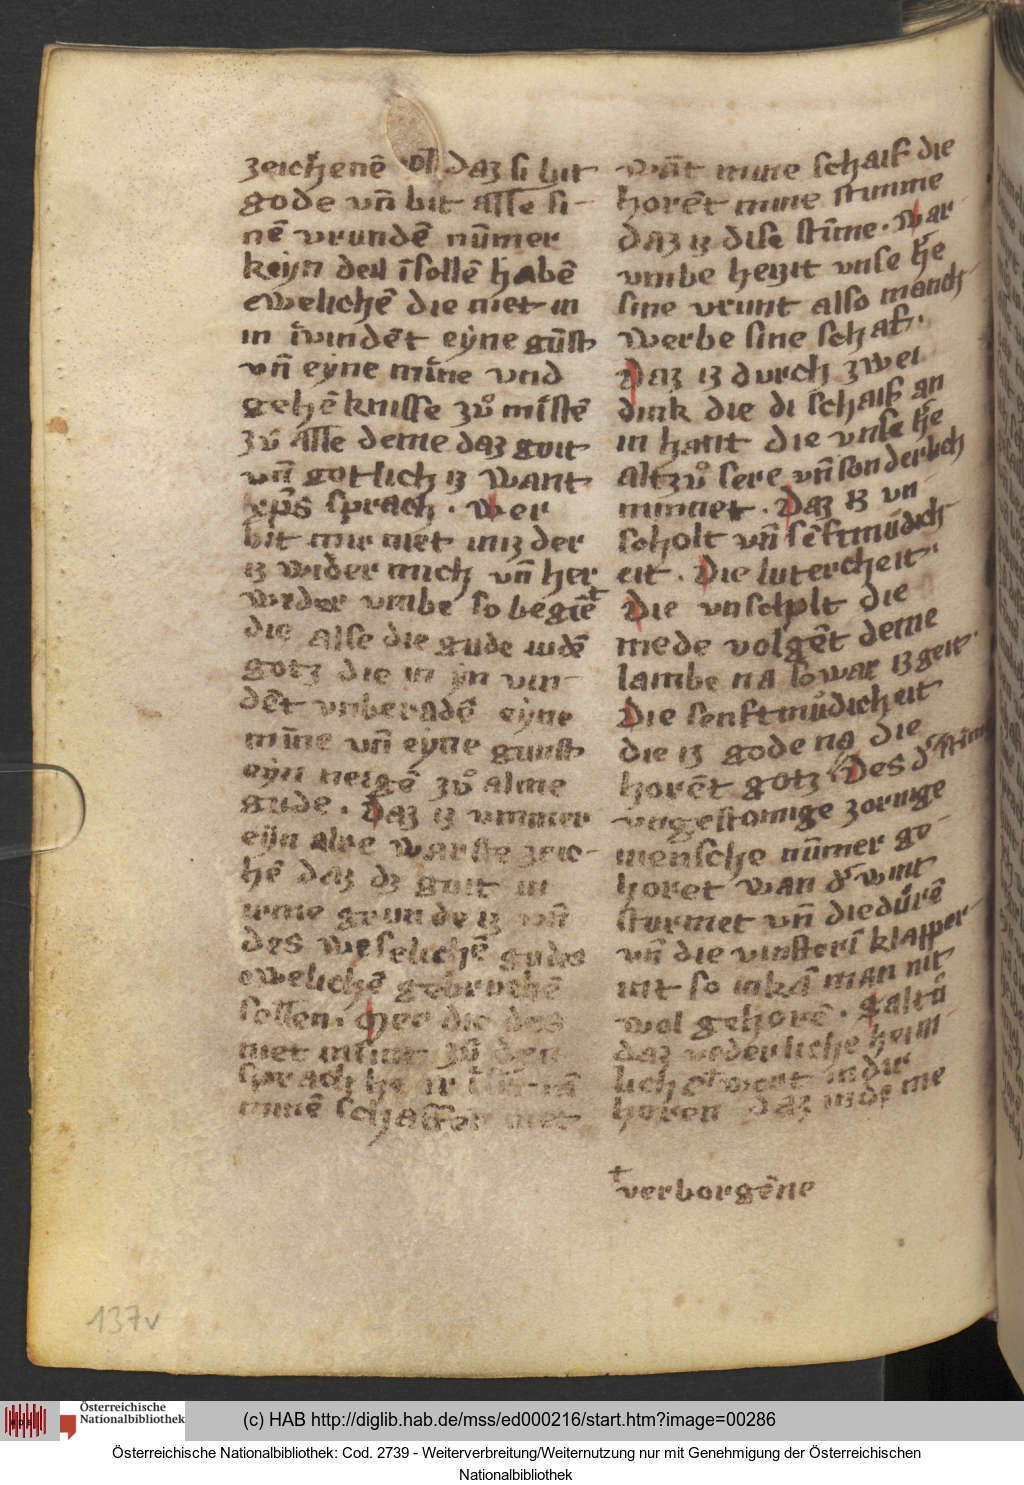 zeichenē vō daz si bit
gode vn̄ bit alle si-
nē vrundē nūmer
keyn deil īsollē habē
ewelichē die niet in
in īvindēt eyne gūst
vn̄ eyne mīne vnd
gehēknisse zů mīstē
zů alle deme daz guit
vn̄ gotlich iz want
xp̄s sprach . wer
bit mir niet iniz der
iz wider mich vn̄ her
weder vmbe so begiē
die alse die gude ludē
gotz die in yn vin-
dēt vnberadē eyne
mīne vn̄ eyne gunst
eyn neigē zů alme
gude . daz iz vmmer
eyn alre warste zeic-
hē daz dz guit in
irme grunde iz vn̄
des weselichē gudes
ewelichē gebruchē
sollen . Mer die des
niet zů den
sprach he
minē schaffen niet
wāt mine schaif die
horēt mine stimme
daz iz dise stīme . war
vmbe heizit vnse h'e
sine vrunt also manch
werbe sine schaf .
Daz iz durch zwei
dink die di schaif an
in hant die vnse h'e
altzů sere vn̄ sonderlich
minnet . Daz iz vn-
scholt vn̄ sēftmůdich
eit . Die lutercheit .
Die vnscholt die
mede volgēt deme
lambe na so war iz geit .
Die senftmůdicheit
die iz gode na die
horēt gotz Des d' stīm
vngestomige zornige
mensche nūmer ge-
horet wan d' wint
sturmet vn̄ die důrē
vn̄ die vinsterī klapper-
int so inkā man nit
wol gehorē . Saltu
daz vederliche heim-
lich wort in dir
horen daz in de me
verborgēne
137v
Österreichische
Nationalbibliothek
(c) HAB http://diglib.hab.de/mss/ed000216/start.htm?image=00286
Österreichische Nationalbibliothek: Cod. 2739 - Weiterverbreitung/Weiternutzung nur mit Genehmigung der Österreichischen
Nationalbibliothek